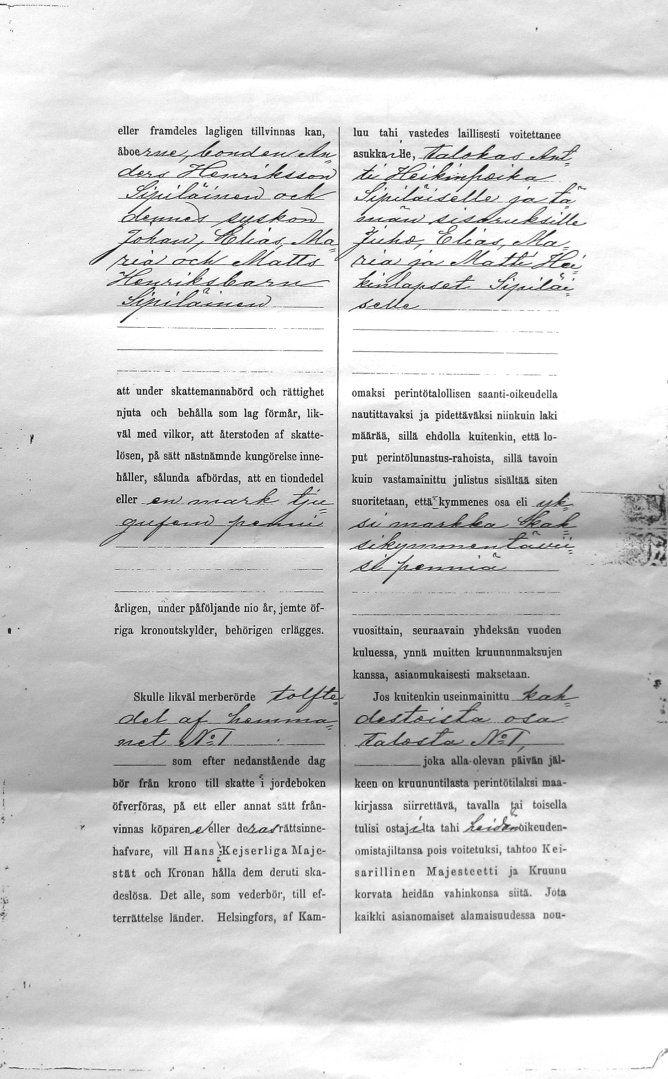 eller framdeles lagligen tillvinnas kan,
åboerne, bonden An-
ders Henriksson
Sipiläinen och
dennes syskon
Johan, Elias, Ma-
ria och Matts
Henriksbarn
Sipiläinen
att under skattemannabörd och rättighet
njuta och behålla som lag förmår, lik-
väl med vilkor, att återstoden af skatte-
lösen, på sätt nästnämnde kungörelse inne-
håller, sålunda afbördas, att en tiondedel
eller en mark tju-
gufem penni
årligen, under påföljande nio år, jemte öf-
riga kronoutskylder, behörigen erlägges.
Skulle likväl merberörde tolfte-
del af hemma-
net No 1
som efter nedanstående dag
bör från krono till skatte i jordeboken
öfverföras, på ett eller annat sätt från-
vinnas köparene eller deras rättsinne-
hafvare, vill Hans Kejserliga Maje-
stät och Kronan hålla dem deruti ska-
deslösa. Det alle, som vederbör, till ef-
terrättelse länder. Helsingfors, af Kam-
luu tahi vastedes laillisesti voitettanee
asukkaille, talokas Ant-
ti Heikinpoika
Sipiläiselle ja tä-
män sisaruksille
Juho, Elias, Ma-
ria ja Matti Hei-
kinlapset Sipiläi-
selle
omaksi perintötalollisen saanti-oikeudella
nautittavaksi ja pidettäväksi niinkuin laki
määrää, sillä ehdolla kuitenkin, että lo-
put perintölunastus-rahoista, sillä tavoin
kuin vastamainittu julistus sisältää siten
suoritetaan, että kymmenes osa eli yk-
si markka kak-
sikymmentävii-
si penniä
vuosittain, seuraavain yhdeksän vuoden
kuluessa, ynnä muitten kruununmaksujen
kanssa, asianmukaisesti maksetaan.
Jos kuitenkin useinmainittu kah-
destoista osa
talosta No 1,
joka alla olevan päivän jäl-
keen on kruununtilasta perintötilaksi maa-
kirjassa siirrettävä, tavalla tai toisella
tulisi ostajilta tahi heidän oikeuden-
omistajiltansa pois voitetuksi, tahtoo Kei-
sarillinen Majesteetti ja Kruunu
korvata heidän vahinkonsa siitä. Jota
kaikki asianomaiset alamaisuudessa nou-